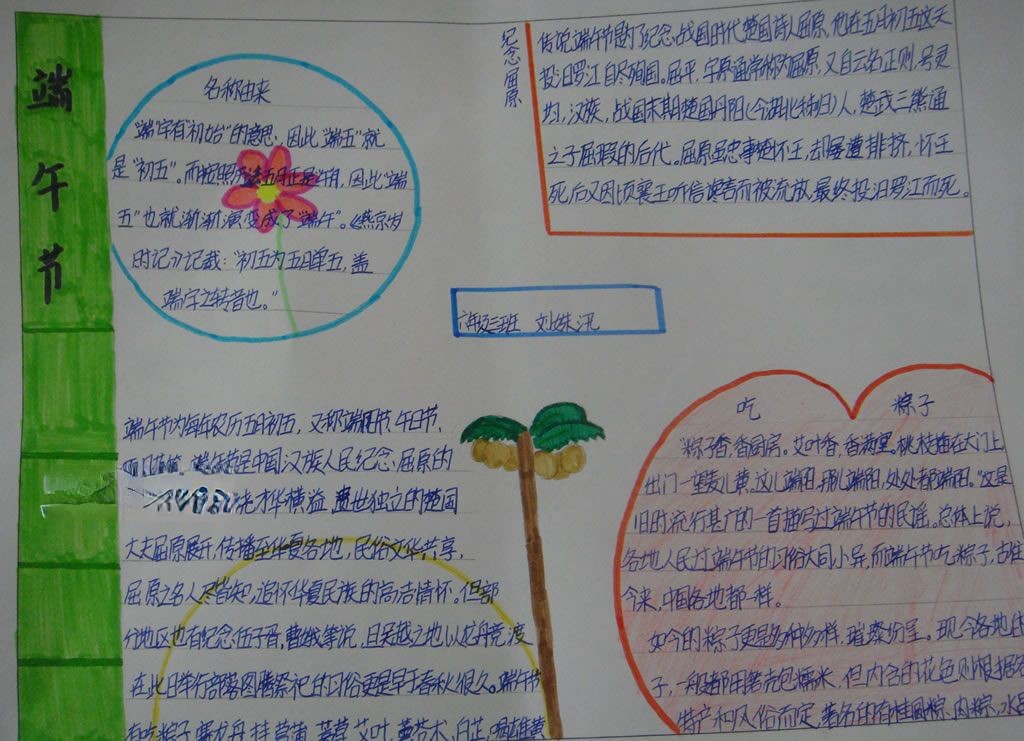 端午节
名称由来
“端”字有“初始”的意思，因此“端五”就
是“初五”。而按照历法五月正是午月，因此“端
五”也就渐渐演变成了“端午”。《燕京岁
时记》记载：“初五为五月单五，盖
端字之转音也。”
纪念屈原
传说端午节是为了纪念战国时代楚国诗人屈原，他在五月初五这天
投汨罗江自尽殉国。屈平，字原通常称为屈原，又自云名正则，号灵
均，汉族，战国末期楚国丹阳（今湖北秭归）人，楚武王熊通
之子屈瑕的后代。屈原虽忠事楚怀王，却屡遭排挤，怀王
死后又因顷襄王听信谗言而被流放，最终投汨罗江而死。
六年级三班 刘姝汛
端午节为每年农历五月初五，又称端阳节、午日节、
五月节。端午节是中国汉族人民纪念屈原的
才华横溢、遗世独立的楚国
大夫屈原展开，传播至华夏各地，民俗文华共享，
屈原之名人尽皆知，追怀华夏民族的高洁情怀。但部
分地区也有纪念伍子胥、曹娥等说，且吴越之地以龙舟竞渡
在此日举行部落图腾祭祀的习俗更是早于春秋很久。端午节
有吃粽子，赛龙舟，挂菖蒲、艾叶，薰苍术、白芷，喝雄黄
吃 粽子
“粽子香，香厨房。艾叶香，香满堂。桃枝插在大门上，
出门一望麦儿黄。这儿端阳，那儿端阳，处处都端阳。”这是
旧时流行甚广的一首描写过端午节的民谣。总体上说，
各地人民过端午节的习俗大同小异，而端午节吃粽子，古往
今来，中国各地都一样。
如今的粽子更是多种多样，璀璨纷呈。现今各地的
子，一般都用箬壳包糯米，但内含的花色则根据各
特产和风俗而定，著名的有桂圆粽、肉粽、水晶